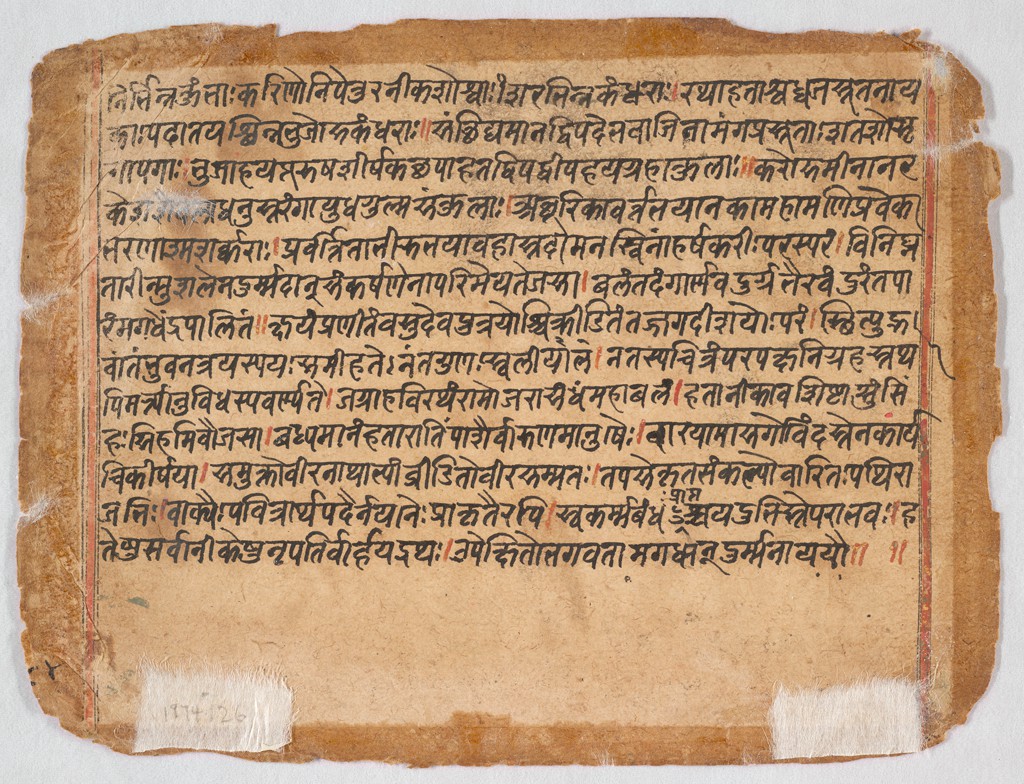 निर्भिन्नकुंभाः करिणो निपेतुरनीकशोश्वाः शरभिन्नकंधराः। रथाहताश्वध्वजसूतनाय
काः पदातयश्छिन्नभुजोरुकंधराः॥ संछिद्यमानद्विपदेभवाजिनामंगप्रसूताः शतशोसृ
गापगाः। भुजाहयपूरुषशीर्षकछपाहतद्विपद्वीपहयग्रहाकुलाः॥ करोरुमीनानर
केश धनुस्तरंगायुधगुल्मसंकुलाः। अछूरिकावर्त्तभयानकामहामणिप्रवेका
भरणाश्मशर्कराः। प्रवर्त्तिताभीरुभयावहामृधे मनस्विनांहर्षकरीः परस्परं। विनिघ्न
तारीन्मुशलेनदुर्म्मदान् संकर्षणेनापरिमेयतेजसा। बलंतदंगार्णवदुर्गभैरवंदुरंतपा
रंमगधेंद्रपालितं॥ क्षयंप्रणीतंवसुदेवपुत्रयोर्विक्रीडितंतज्जगदीशयोः परं। स्थित्युद्भ
वांतंभुवनत्रयस्ययः समीहतेनंतगुणः स्वलीलया। नतस्यचित्रंपरपक्षनिग्रहस्तथा
पिमर्त्यानुविधस्यवर्ण्यते। जग्राहविरथंरामोजरासंधंमहाबलं। हतानीकावशिष्टासुंसिं
हः सिंहमिवौजसा। बध्यमानंहतारातिंपाशैर्वारुणमानुषैः। वारयामासगोविंदस्तेनकार्य
चिकीर्षया। समुक्तो नाथाभ्यांव्रीडितोवीरसम्मतः। तपसेकृतसंकल्पोवारितः पथिरा
जभिः। वाक्यैः पवित्रार्थपदैर्नयनैः प्राकृतैरपि। स्वकर्म्मबंधप्राप्तोयंयदुभिस्तेपराभवः। ह
तेषुसर्वानीकेषुनृपतिर्बार्हद्रथः। उपेक्षितोभगवतामगधान् दुर्म्मनाययौ॥ ॥
1974.126